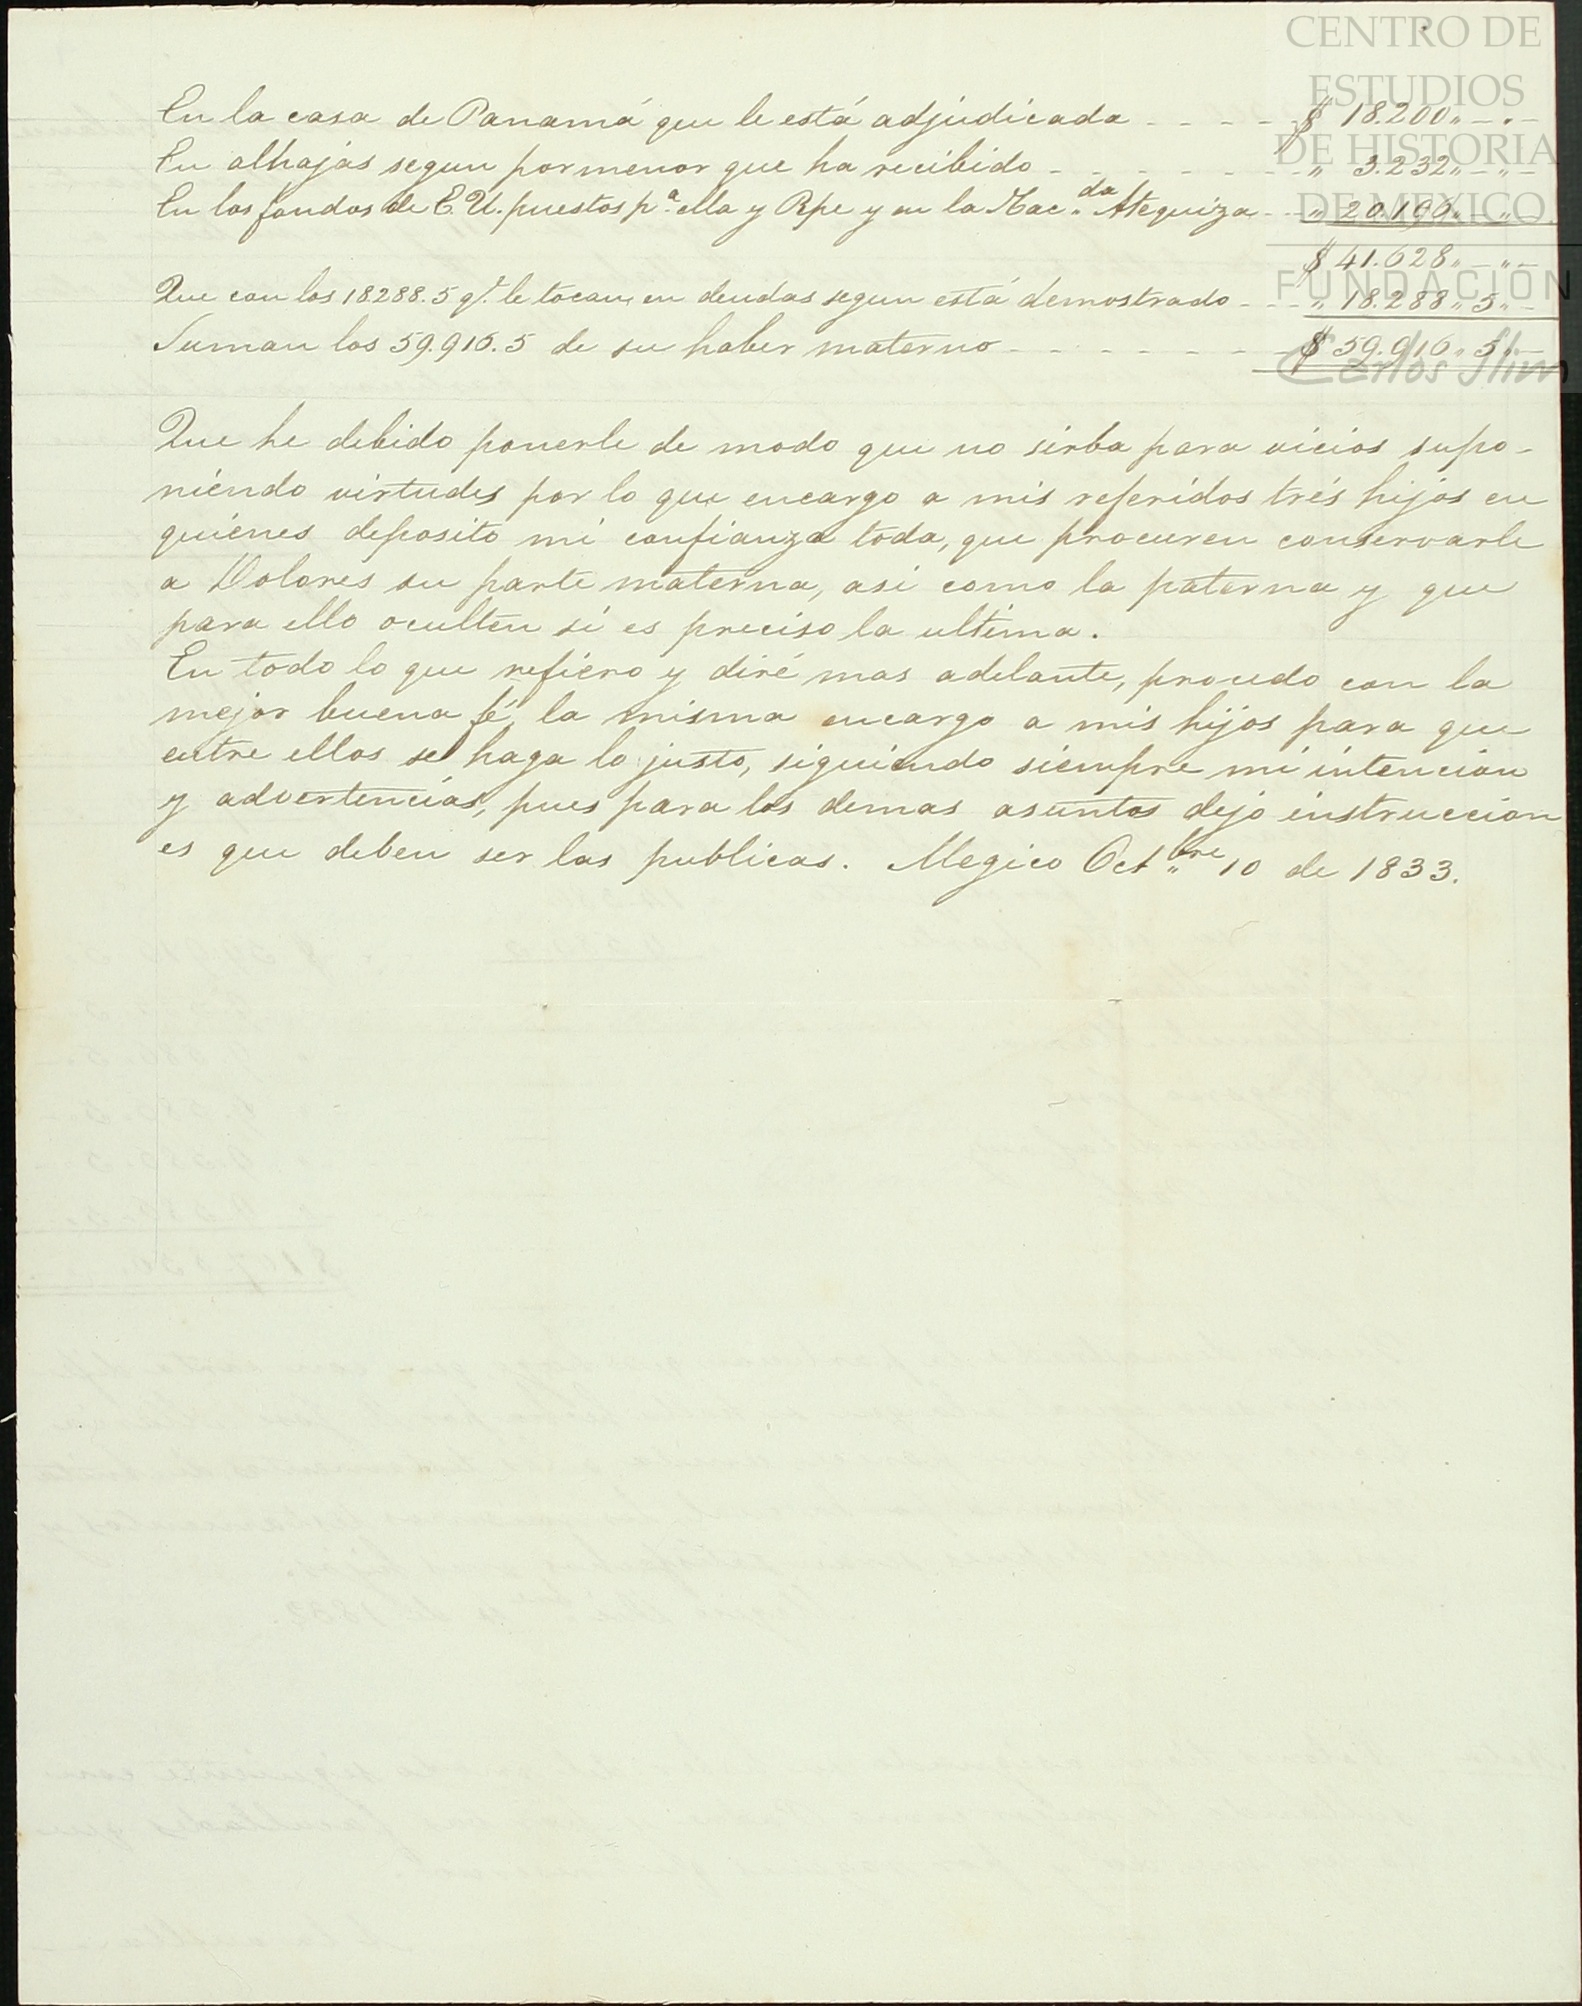 CENTRO DE
ESTUDIOS
DE HISTORIA
DE MEXICO
FUNDACIÓN
Carlos Slim
En la casa de Panamá que le está adjudicada - - - - $ 18.200„ - „ -
En alhajas segun pormenor que ha recibido - - - - - - - „ 3.232„ - „ -
En los fondos de E.U. puestos p.ª ella y Rpe y en la Hac.da Atequiza - - „ 20.196„ - „ -
$ 41.628„ - „ -
Que con los 18288.5 q.e le tocan, en deudas segun está demostrado - - - „ 18.288„ 5„ -
Suman los 59.916.5 de su haber materno - - - - - - - $ 59.916„ 5„ -
Que he debido ponerle de modo que no sirba para vicios supo-
niendo virtudes por lo que encargo a mis referidos trés hijos en
quiénes deposito mi confianza toda, que procuren conservarle
a Dolores su parte materna, asi como la paterna y que
para ello oculten si es preciso la ultima.
En todo lo que refiero y diré mas adelante, procedo con la
mejor buena fé, la misma encargo a mis hijos para que
entre ellos se haga lo justo, siguiendo siempre mi intencion
y advertencias, pues para los demas asuntos dejo instruccion
es que deben ser las publicas. Megico Oct.bre 10 de 1833.